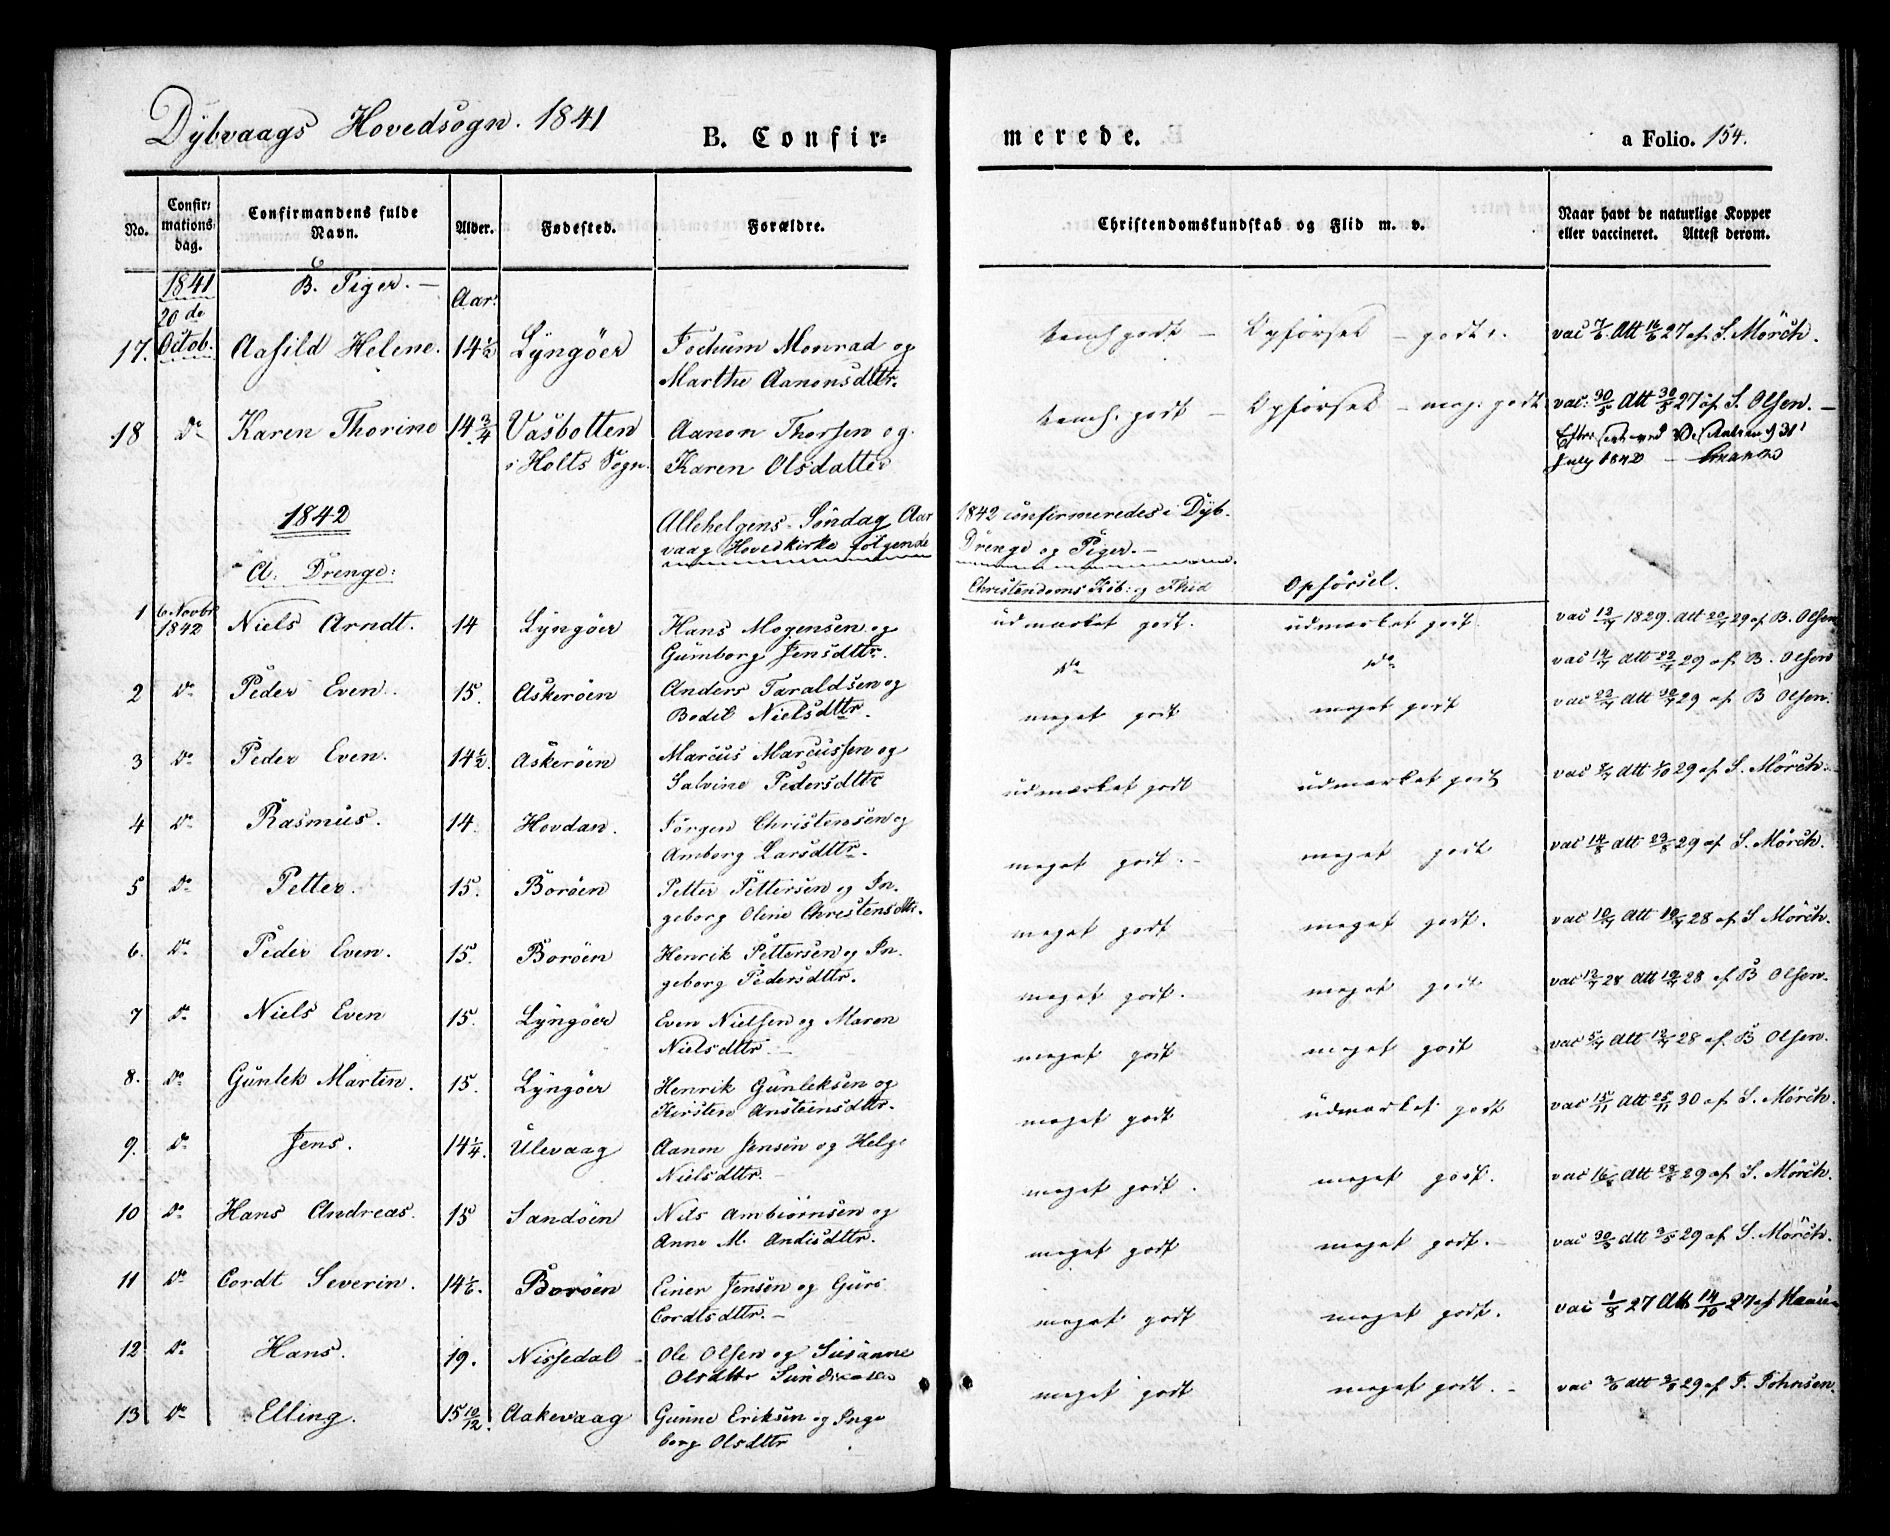 Dybvaags Hovedsogn. 1841
B. Confir=
merede.
a Folio. 154.
No.
Confir=
mations=
dag.
Confirmandens fulde
Navn.
Alder.
Fødested.
Forældre.
Christendomskundskab og Flid m. v.
Naar havt de naturlige Kopper
eller vaccineret. Attest derom.
1841
20de
Octob.
B. Piger. —
Aar:
17. Aasild Helene. 14½ Lyngöer Fochum Monrad og godt — Opførsel — godt. vac 7/6 Att 16/6 27 af S. Mörch.
Marthe Aanonsdttr.
18 Do Karen Thorine 14¾ Vasbotten Aanon Thorsen og godt — Opførsel — meg: godt vac: 30/5 Att 30/5 27 af S. Olsen. —
i Holts Sogn. Karen Olsdatter
July 1842 —
1842
Allehelgens-Søndag Aar 1842 confirmeredes i Dyb-
vaag Hovedkirke følgende Drenge og Piger. —
A. Drenge:
Christendoms Kdb: og Flid Opførsel.
1 6 Novbr 1842 Niels Arndt. 14 Lyngöer Hans Mogensen og udmærket godt. udmærket godt. vac 12/7 1829. Att 20/7 29 af B. Olsen
Gumborg Jensdttr. do do vac 14/7 Att 22/7 29 af B. Olsen
2 Do Peder Even. 15. Askeröen Anders Taraldsen og
Bodil Nielsdttr. meget godt meget godt vac 22/7 Att 30/7 29 af B Olsen.
3 Do Peder Even. 14½. Askeröen Marcus Marcussen og
Salvine Pedersdttr udmærket godt udmærket godt vac Att 1/10 29 af S. Mörch.
4 Do Rasmus. 14. Hovdan. Jörgen Christensen og
Amborg Larsdttr. meget godt. — meget godt vac 14/8 Att 23/8 29 af S. Mörch.
5 Do Petter. 15. Boröen Petter Pettersen og In-
geborg Oline Christensdttr. meget godt meget godt. vac 10/7 Att 19/7 28 af S Mörch.
6. Do Peder Even. 15. Boröen Henrik Pettersen og In-
geborg Pedersdttr. meget godt. meget godt vac 12/7 28 Att 19/7 28 af B Olsen.
7 Do Niels Even 15. Lyngöer Even Nielsen og Maren
Nielsdttr. — meget godt meget godt vac 5/7 Att 12/7 28 af B Olsen.
8. Do Gunlek Martin. 15. Lyngöer Henrik Gunleksen og
Kirsten Ansteinsdttr. meget godt udmærket godt vac 15/11 Att 25/11 30 af S. Mörch.
9. Do Jens. 14¼. Ulevaag Aanon Jensen og Helge
Nielsdttr. — meget godt. meget godt. vac 16/8 Att 28/8 29 af S. Mörch.
10 Do Hans Andreas. 15 Sandöen Nils Ambiörnsen og
Anne M. Andisdttr. meget godt meget godt. — vac 30/5 Att 29 af S. Mörch.
11 Do Cordt Severin. 14½. Boröen Einer Jensen og Guro
Cordtsdttr. — meget godt meget godt. vac 1/8 27 Att 14/10 27 af
12 Do Hans. 19. Nissedal Ole Olsen og Susanne
Olsdttr meget godt meget godt. — vac Att 29 af F. Johnsen.
13 Do Elling. 15 10/12. Aakevaag Gunne Eriksen og Inge
borg Olsdttr